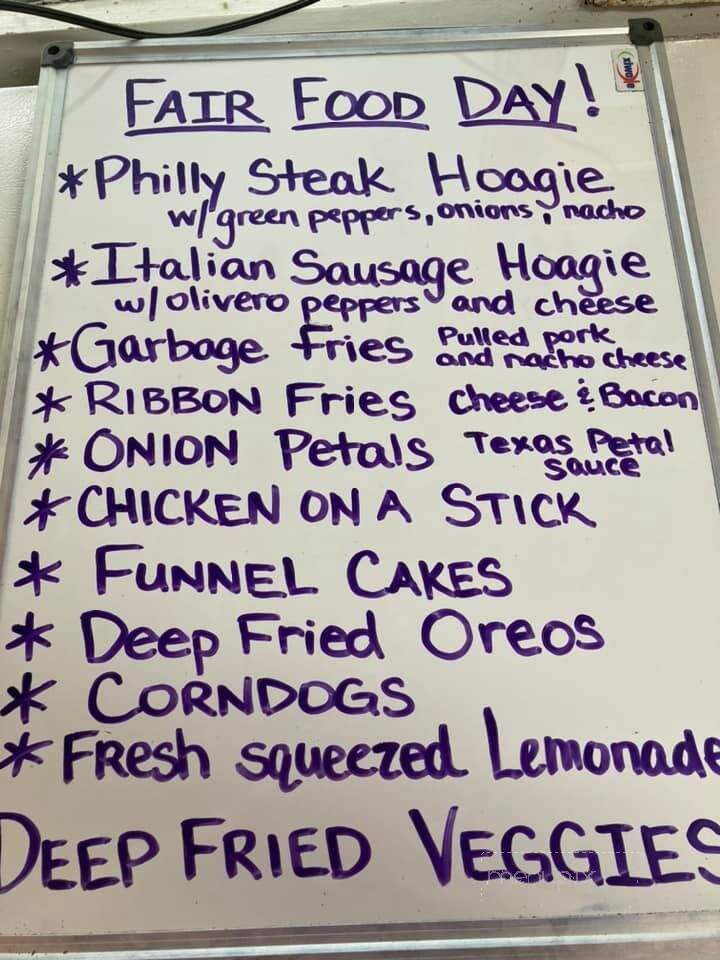 FAIR FOOD DAY!
* Philly Steak Hoagie
w/ green peppers, onions, nacho
* Italian Sausage Hoagie
w/ olivero peppers and cheese
* Garbage Fries Pulled pork
and nacho cheese
* RIBBON Fries cheese & Bacon
* ONION Petals Texas Petal
sauce
* CHICKEN ON A STICK
* FUNNEL CAKES
* Deep Fried Oreos
* CORNDOGS
* FResh squeezed Lemonade
DEEP FRIED VEGGIES
menupix